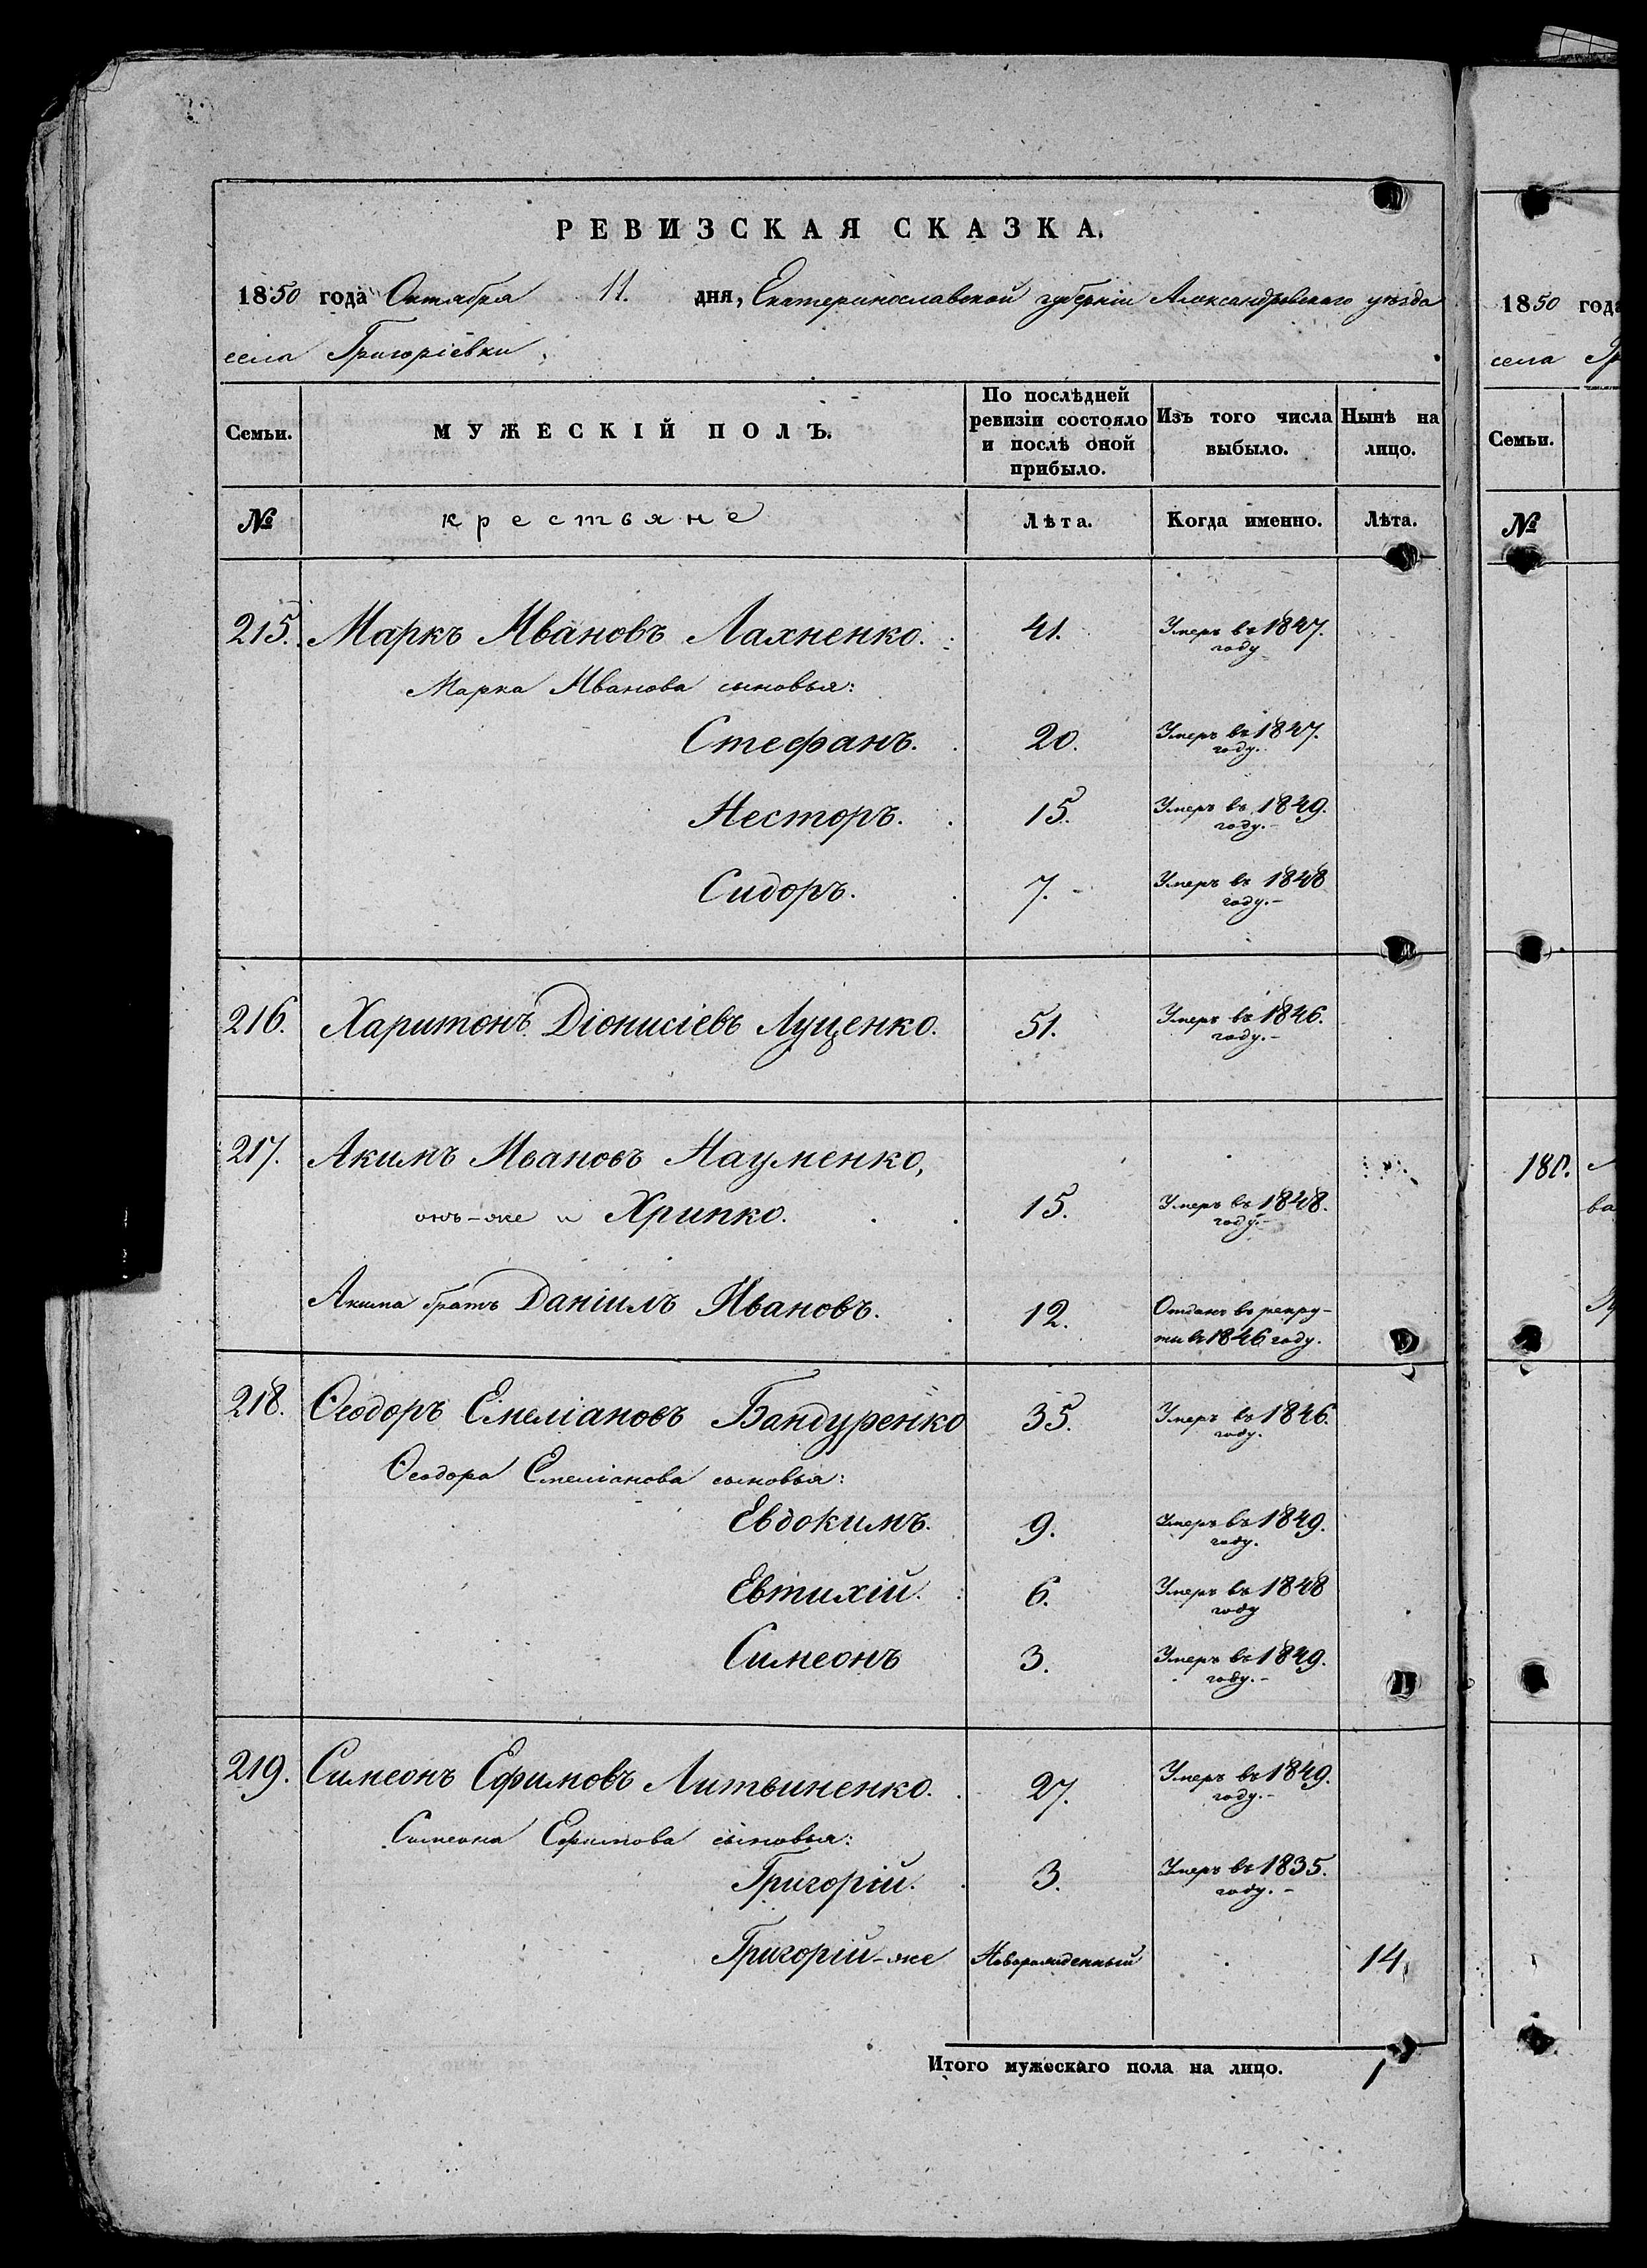 РЕВИЗСКАЯ СКАЗКА.
1850 года Октября 11. дня, Екатеринославской губерніи Александровскаго уѣзда
села Григоріевки.
Семьи. МУЖЕСКІЙ ПОЛЪ. По послѣдней ревизіи состояло и послѣ оной прибыло. Изъ того числа выбыло. Нынѣ на лицо.
№ крестьяне Лѣта. Когда именно. Лѣта.
215. Маркъ Ивановъ Лахненко. 41. Умеръ въ 1847. году
Марка Иванова сыновья:
Стефанъ. 20. Умеръ въ 1847. году.
Несторъ. 15. Умеръ въ 1849. году.-
Сидоръ. 7.- Умеръ въ 1848 году.-
216. Харитонъ Діонисіевъ Луценко. 51. Умеръ въ 1846. году.-
217. Акимъ Ивановъ Науменко,
онъ-же и Хрипко. 15. Умеръ въ 1848. году.-
Акима братъ Даніилъ Ивановъ. 12. Отданъ въ рекру-
ти въ 1846 году.
218. Ѳеодоръ Емеліановъ Бандуренко 35. Умеръ въ 1846. году.
Ѳеодора Емеліанова сыновья:
Евдокимъ. 9. Умеръ въ 1849. году.
Евтихій. 6. Умеръ въ 1848 году
Симеонъ 3. Умеръ въ 1849. году.-
219. Симеонъ Ефимовъ Литвиненко. 27. Умеръ въ 1849. году.-
Симеона Ефимова сыновья:
Григорій. 3. Умеръ въ 1835. году.-
Григорій-же Новорожденный 14.
Итого мужескаго пола на лицо. 1
1850 года
села Гр
Семьи.
№
180.
ва